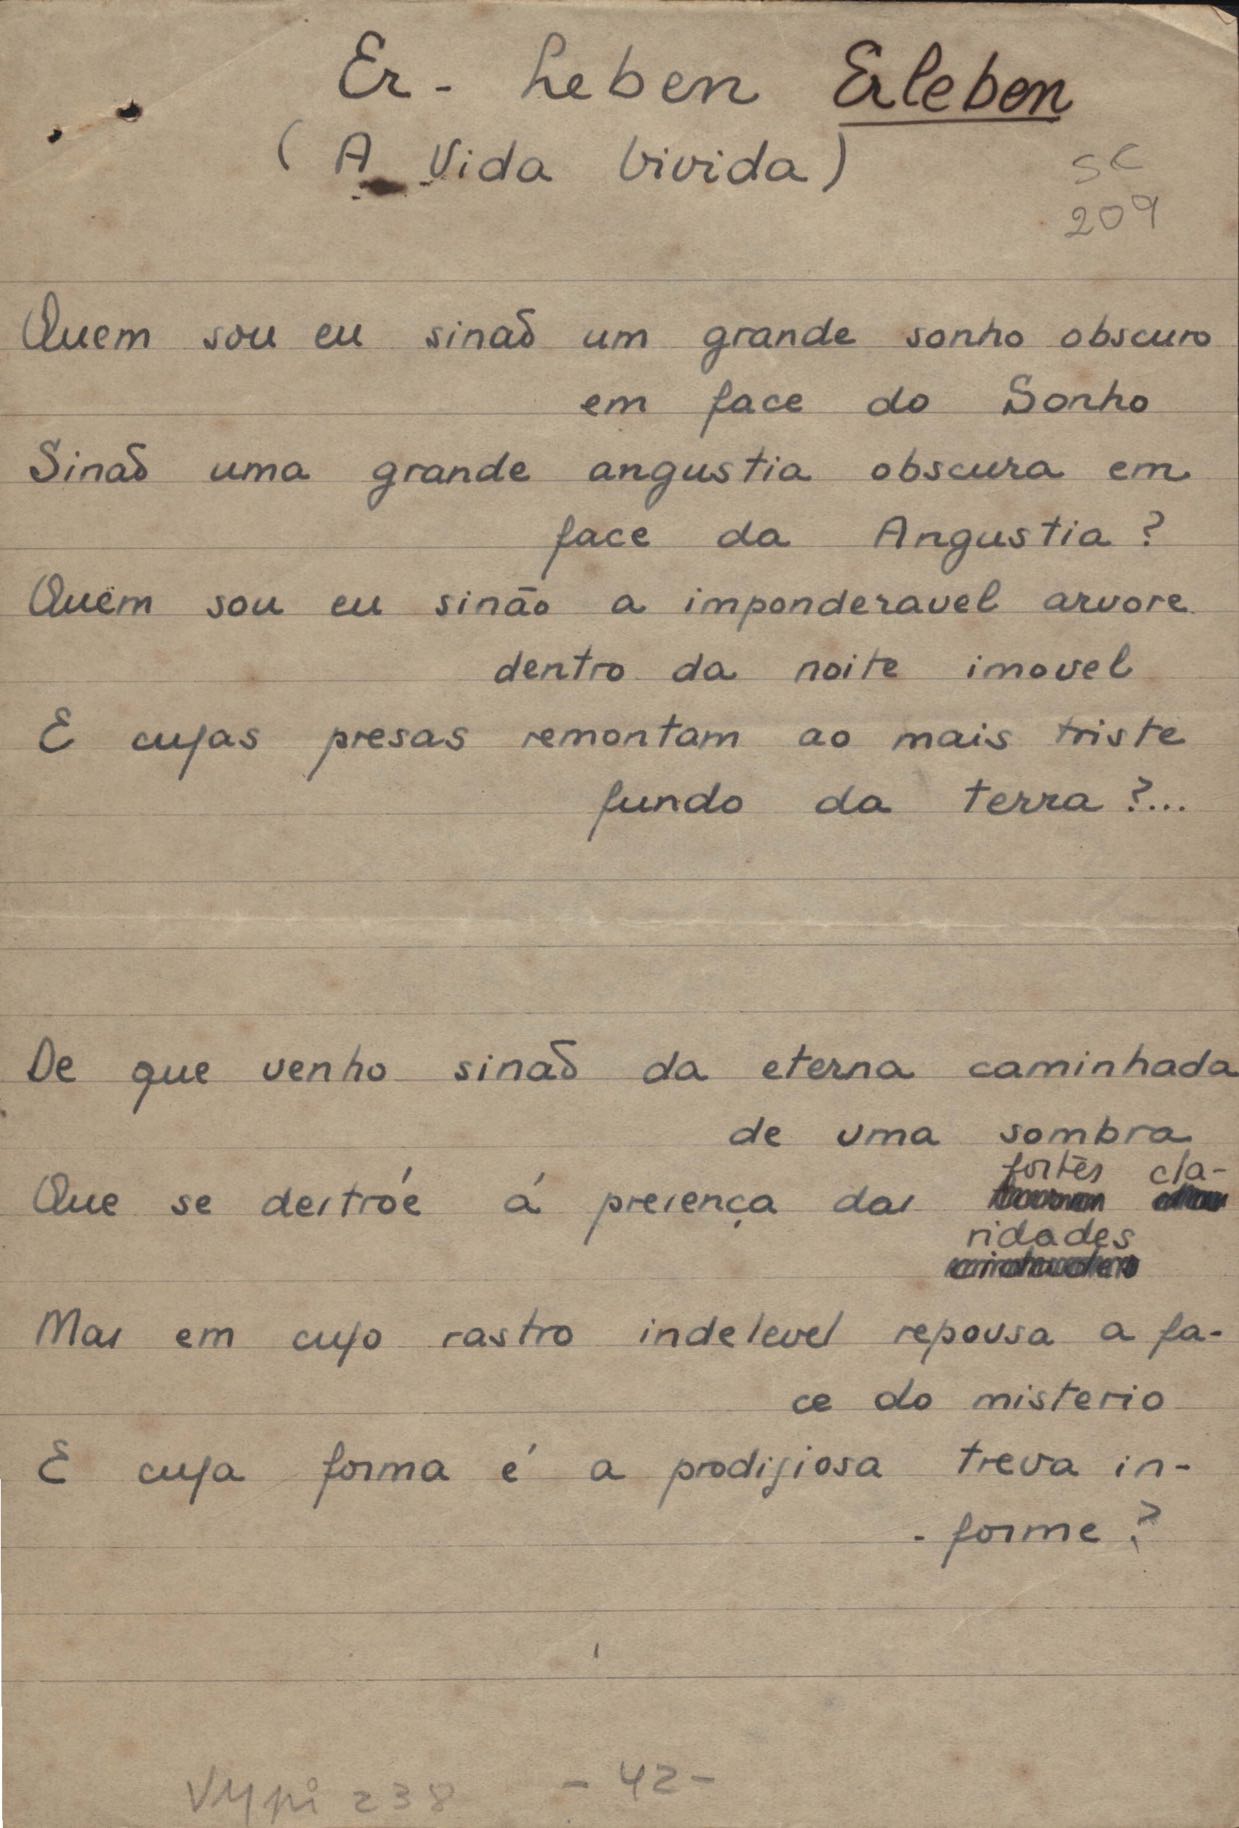 Er - Leben Erleben
(A Vida Vivida)
SC
209
Quem sou eu sinaõ um grande sonho obscuro
em face do Sonho
Sinaõ uma grande angustia obscura em
face da Angustia?
Quem sou eu sinão a imponderavel arvore
dentro da noite imovel
E cujas presas remontam ao mais triste
fundo da terra?...
De que venho sinaõ da eterna caminhada
de uma sombra
Que se destróe á presença das fortes cla-
ridades
Mas em cujo rastro indelevel repousa a fa-
ce do misterio
E cuja forma é a prodigiosa treva in-
- forme?
VMpi 238 - 42 -